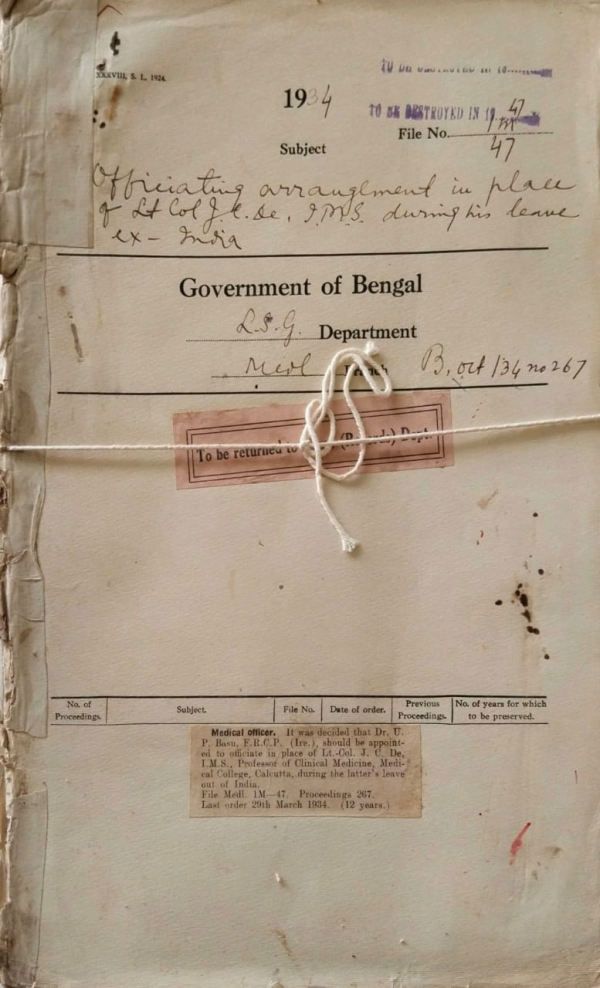 XXXVIII, S. L. 1924.
TO BE DESTROYED IN 19
1934
TO BE DESTROYED IN 19 47
File No. 1M
47
Subject
Officiating arrangement in place
of Lt Col J. C. De, I.M.S. during his leave
ex - India
Government of Bengal
L.S.G. Department
Medl Branch B, Oct /34 no 267
To be returned to (Records) Dept.
No. of Proceedings.
Subject.
File No.
Date of order.
Previous Proceedings.
No. of years for which to be preserved.
Medical officer. It was decided that Dr. U.
P. Basu, F.R.C.P. (Ire.), should be appoint-
ed to officiate in place of Lt.-Col. J. C. De,
I.M.S., Professor of Clinical Medicine, Medi-
cal College, Calcutta, during the latter's leave
out of India.
File Medl. 1M—47. Proceedings 267.
Last order 29th March 1934. (12 years.)